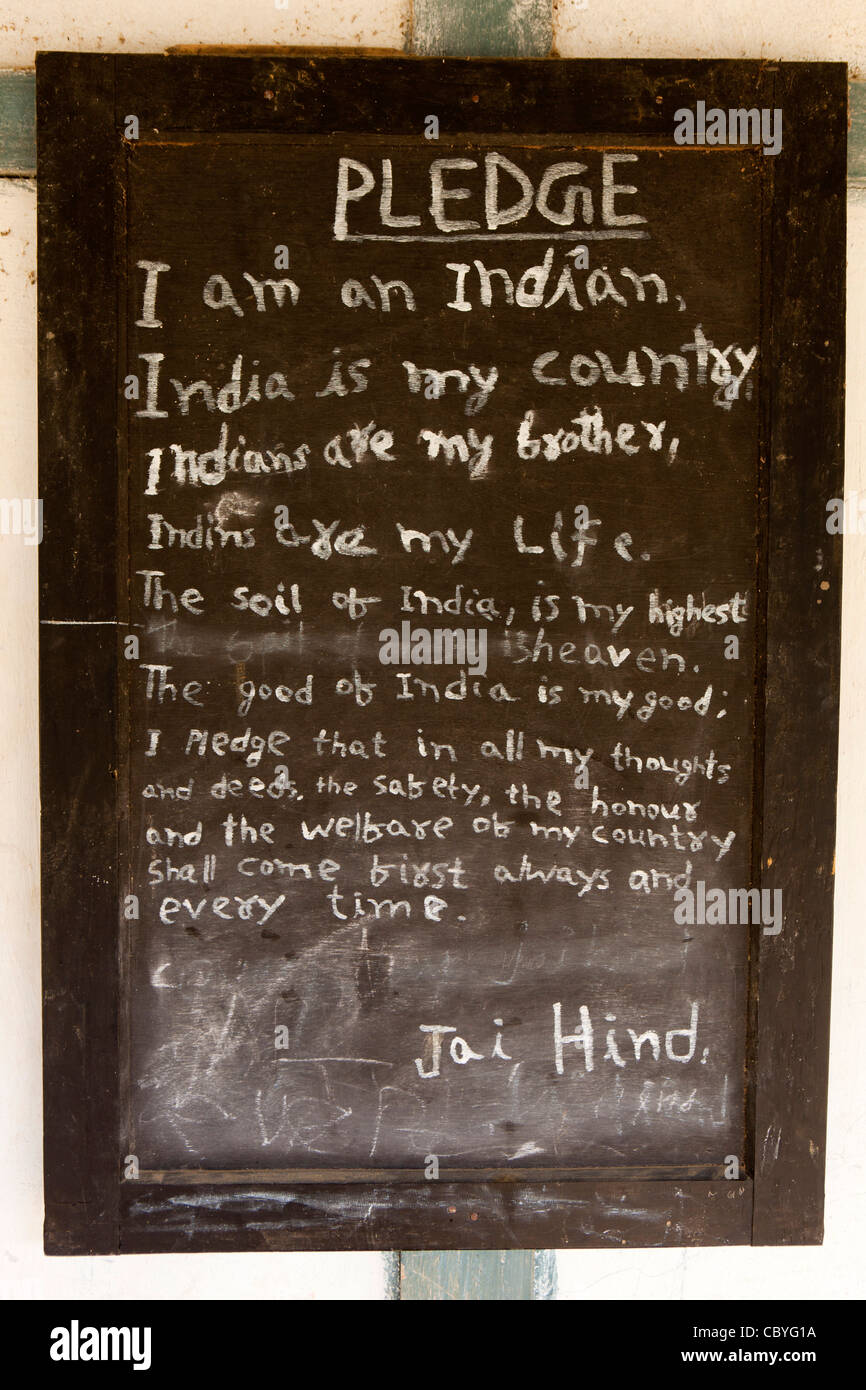 PLEDGE
I am an Indian,
India is my country,
Indians are my brother,
Indins are my Life.
The soil of India, is my highest
heaven.
The good of India is my good;
I Pledge that in all my thoughts
and deeds, the safety, the honour
and the welfare of my country
Shall come first always and
every time.
Jai Hind.
alamy
Image ID: CBYG1A
www.alamy.com